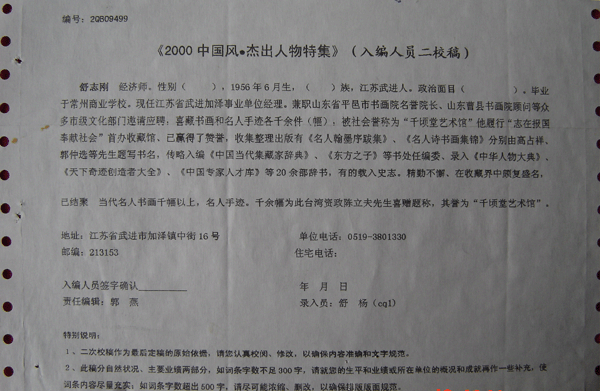 编号：2QB09499
《2000 中国风•杰出人物特集》（入编人员二校稿）
舒志刚 经济师。性别（ ），1956 年 6 月生，（ ）族，江苏武进人。政治面目（ ）。毕业
于常州商业学校。现任江苏省武进加泽事业单位经理。兼职山东省平邑市书画院名誉院长、山东曹县书画院顾问等众
多市级文化部门邀请应聘，喜藏书画和名人手迹各千余件（幅），被社会誉称为“千顷堂艺术馆”他履行“志在报国
奉献社会”首办收藏馆、已赢得了赞誉。收集整理出版有《名人翰墨序跋集》、《名人诗书画集锦》分别由高占祥、
郭仲选等先生题写书名，传略入编《中国当代集藏家辞典》、《东方之子》等书处任编委、录入《中华人物大典》、
《天下奇迹创造者大全》、《中国专家人才库》等 20 余部辞书，有的载入史志。精勤不懈、在收藏界中颇复盛名，
已结聚 当代名人书画千幅以上，名人手迹。千余幅为此台湾资政陈立夫先生喜赠题称，其誉为“千顷堂艺术馆”。
地址：江苏省武进市加泽镇中街 16 号 单位电话：0519-3801330
邮编：213153 住宅电话：
入编人员签字确认 年 月 日
责任编辑：郭 燕 录入员：舒 杨（cql）
特别说明：
1、二次校稿作为最后定稿的原始依据，请您认真校阅、修改，以确保内容准确和文字规范。
2、此稿分自然状况、主要业绩两部分，如词条字数不足 300 字，请就您的生平和业绩或所在单位的概况和成就再作一些补充，使
词条内容尽量充实；如词条字数超出 500 字，请尽可能浓缩、删改，以确保排版版面规范。